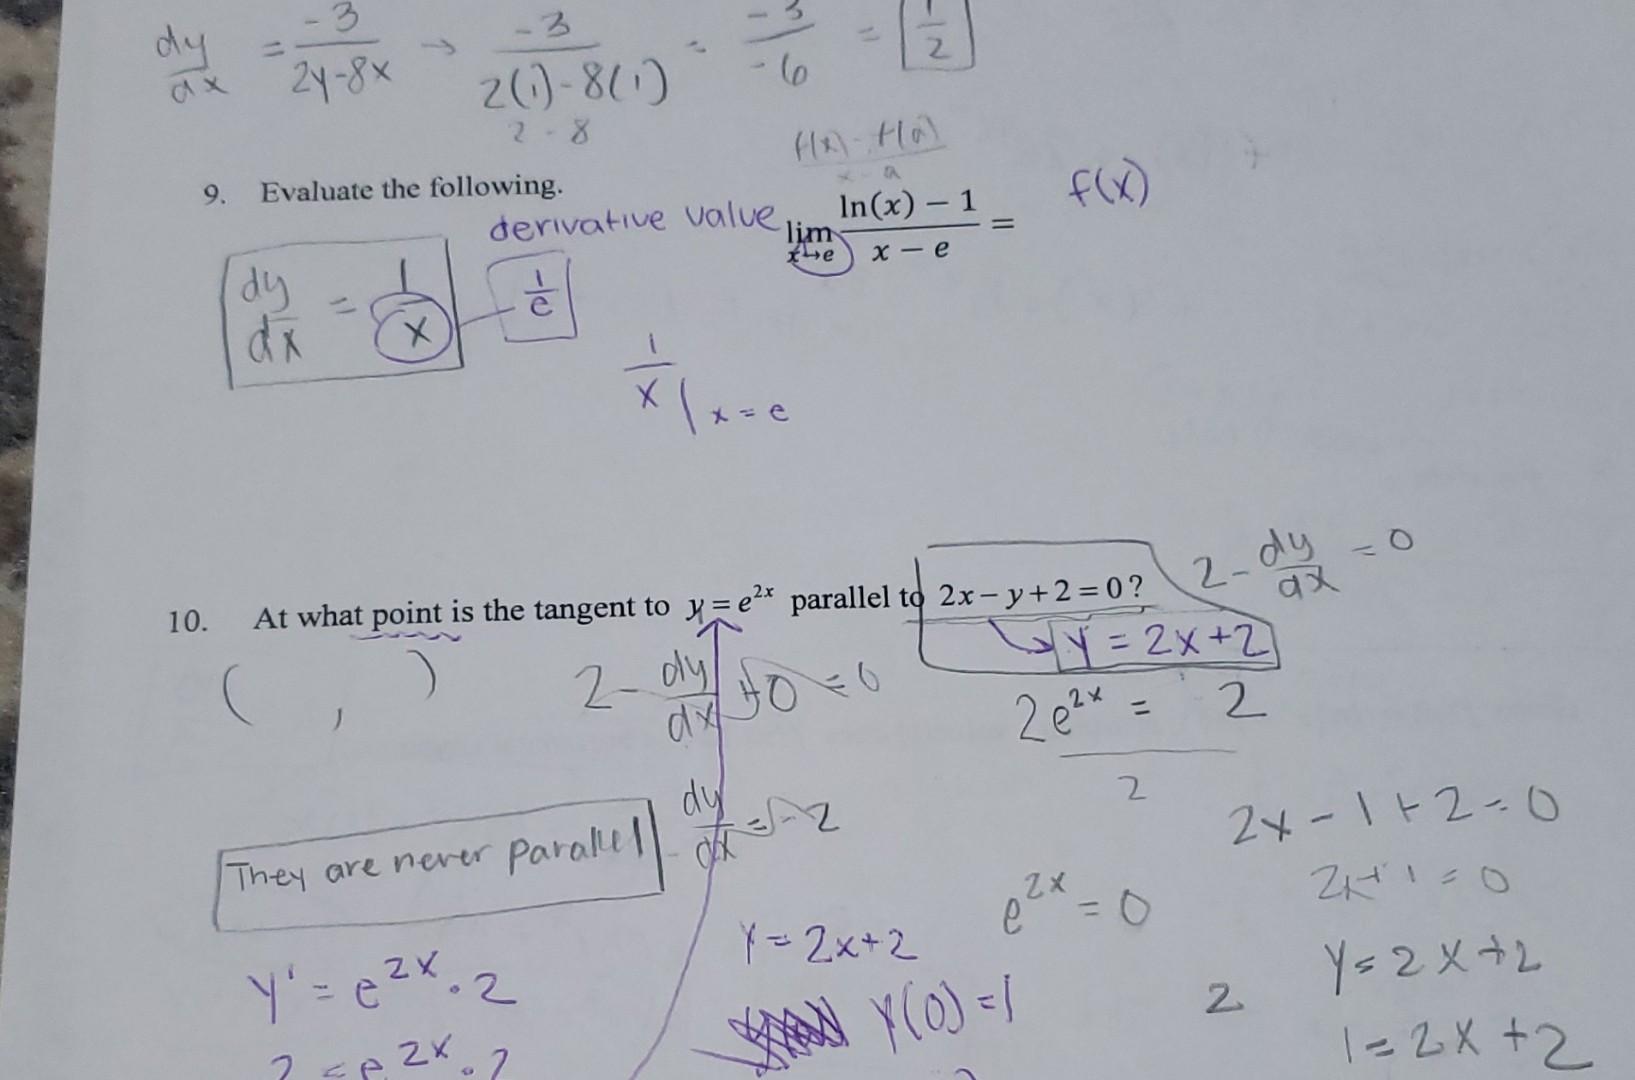 dy/dx = -3/(2y-8x) → -3/(2(1)-8(1)) = -3/-6 = 1/2
2 - 8
f(x) - f(a)
x - a
9. Evaluate the following.
derivative value lim x→e (ln(x) − 1)/(x − e) = f(x)
dy/dx = 1/x 1/e
1/x | x = e
10. At what point is the tangent to y = e^{2x} parallel to 2x − y + 2 = 0 ?
2 - dy/dx = 0
y = 2x+2
( , )
2 - dy/dx + 0 = 0
2e^{2x} = 2
2
dy/dx = -2
2x - 1 + 2 = 0
They are never parallel
2x + 1 = 0
e^{2x} = 0
y = 2x+2
y = 2x+2
y' = e^{2x} · 2
y(0) = 1
2
1 = 2x + 2
2 = e^{2x} · 2